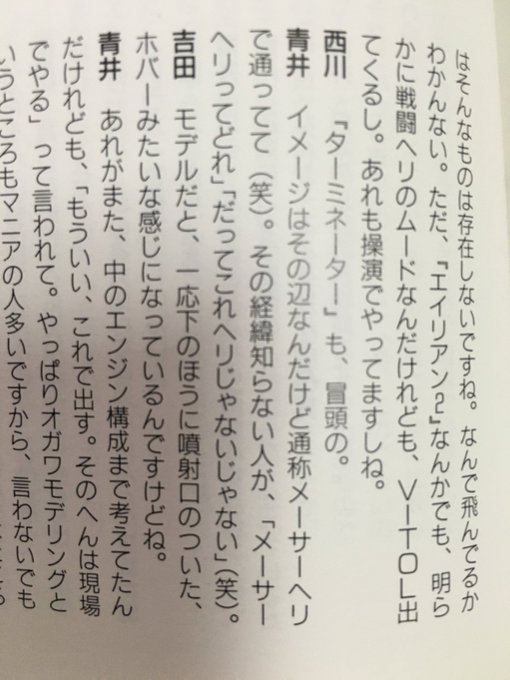 はそんなものは存在しないですね。なんで飛んでるか
わかんない。ただ、『エイリアン2』なんかでも、明ら
かに戦闘ヘリのムードなんだけれども、VITOL出
てくるし。あれも操演でやってますしね。
西川　『ターミネーター』も、冒頭の。
青井　イメージはその辺なんだけど通称メーサーヘリ
で通ってて（笑）。その経緯知らない人が、「メーサー
ヘリってどれ」「だってこれヘリじゃないじゃない」（笑）。
吉田　モデルだと、一応下のほうに噴射口のついた、
ホバーみたいな感じになっているんですけどね。
青井　あれがまた、中のエンジン構成まで考えてたん
だけれども、「もういい、これで出す。そのへんは現場
でやる」って言われて。やっぱりオガワモデリングと
いうところもマニアの人多いですから、言わないでも